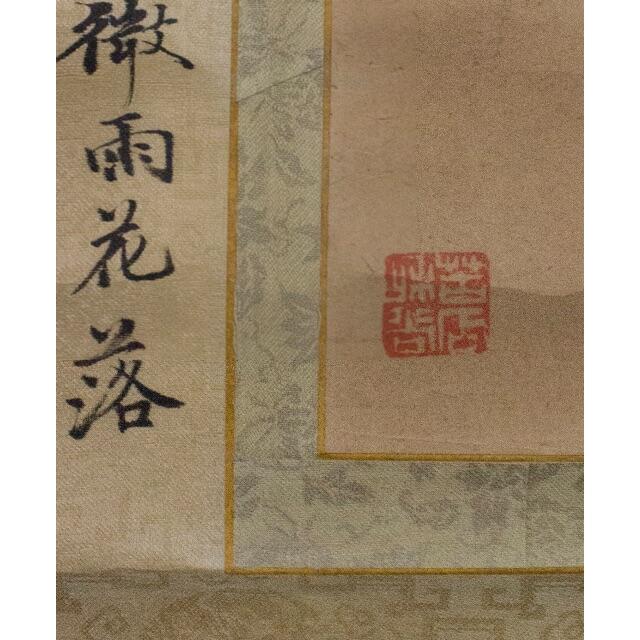 微雨花落